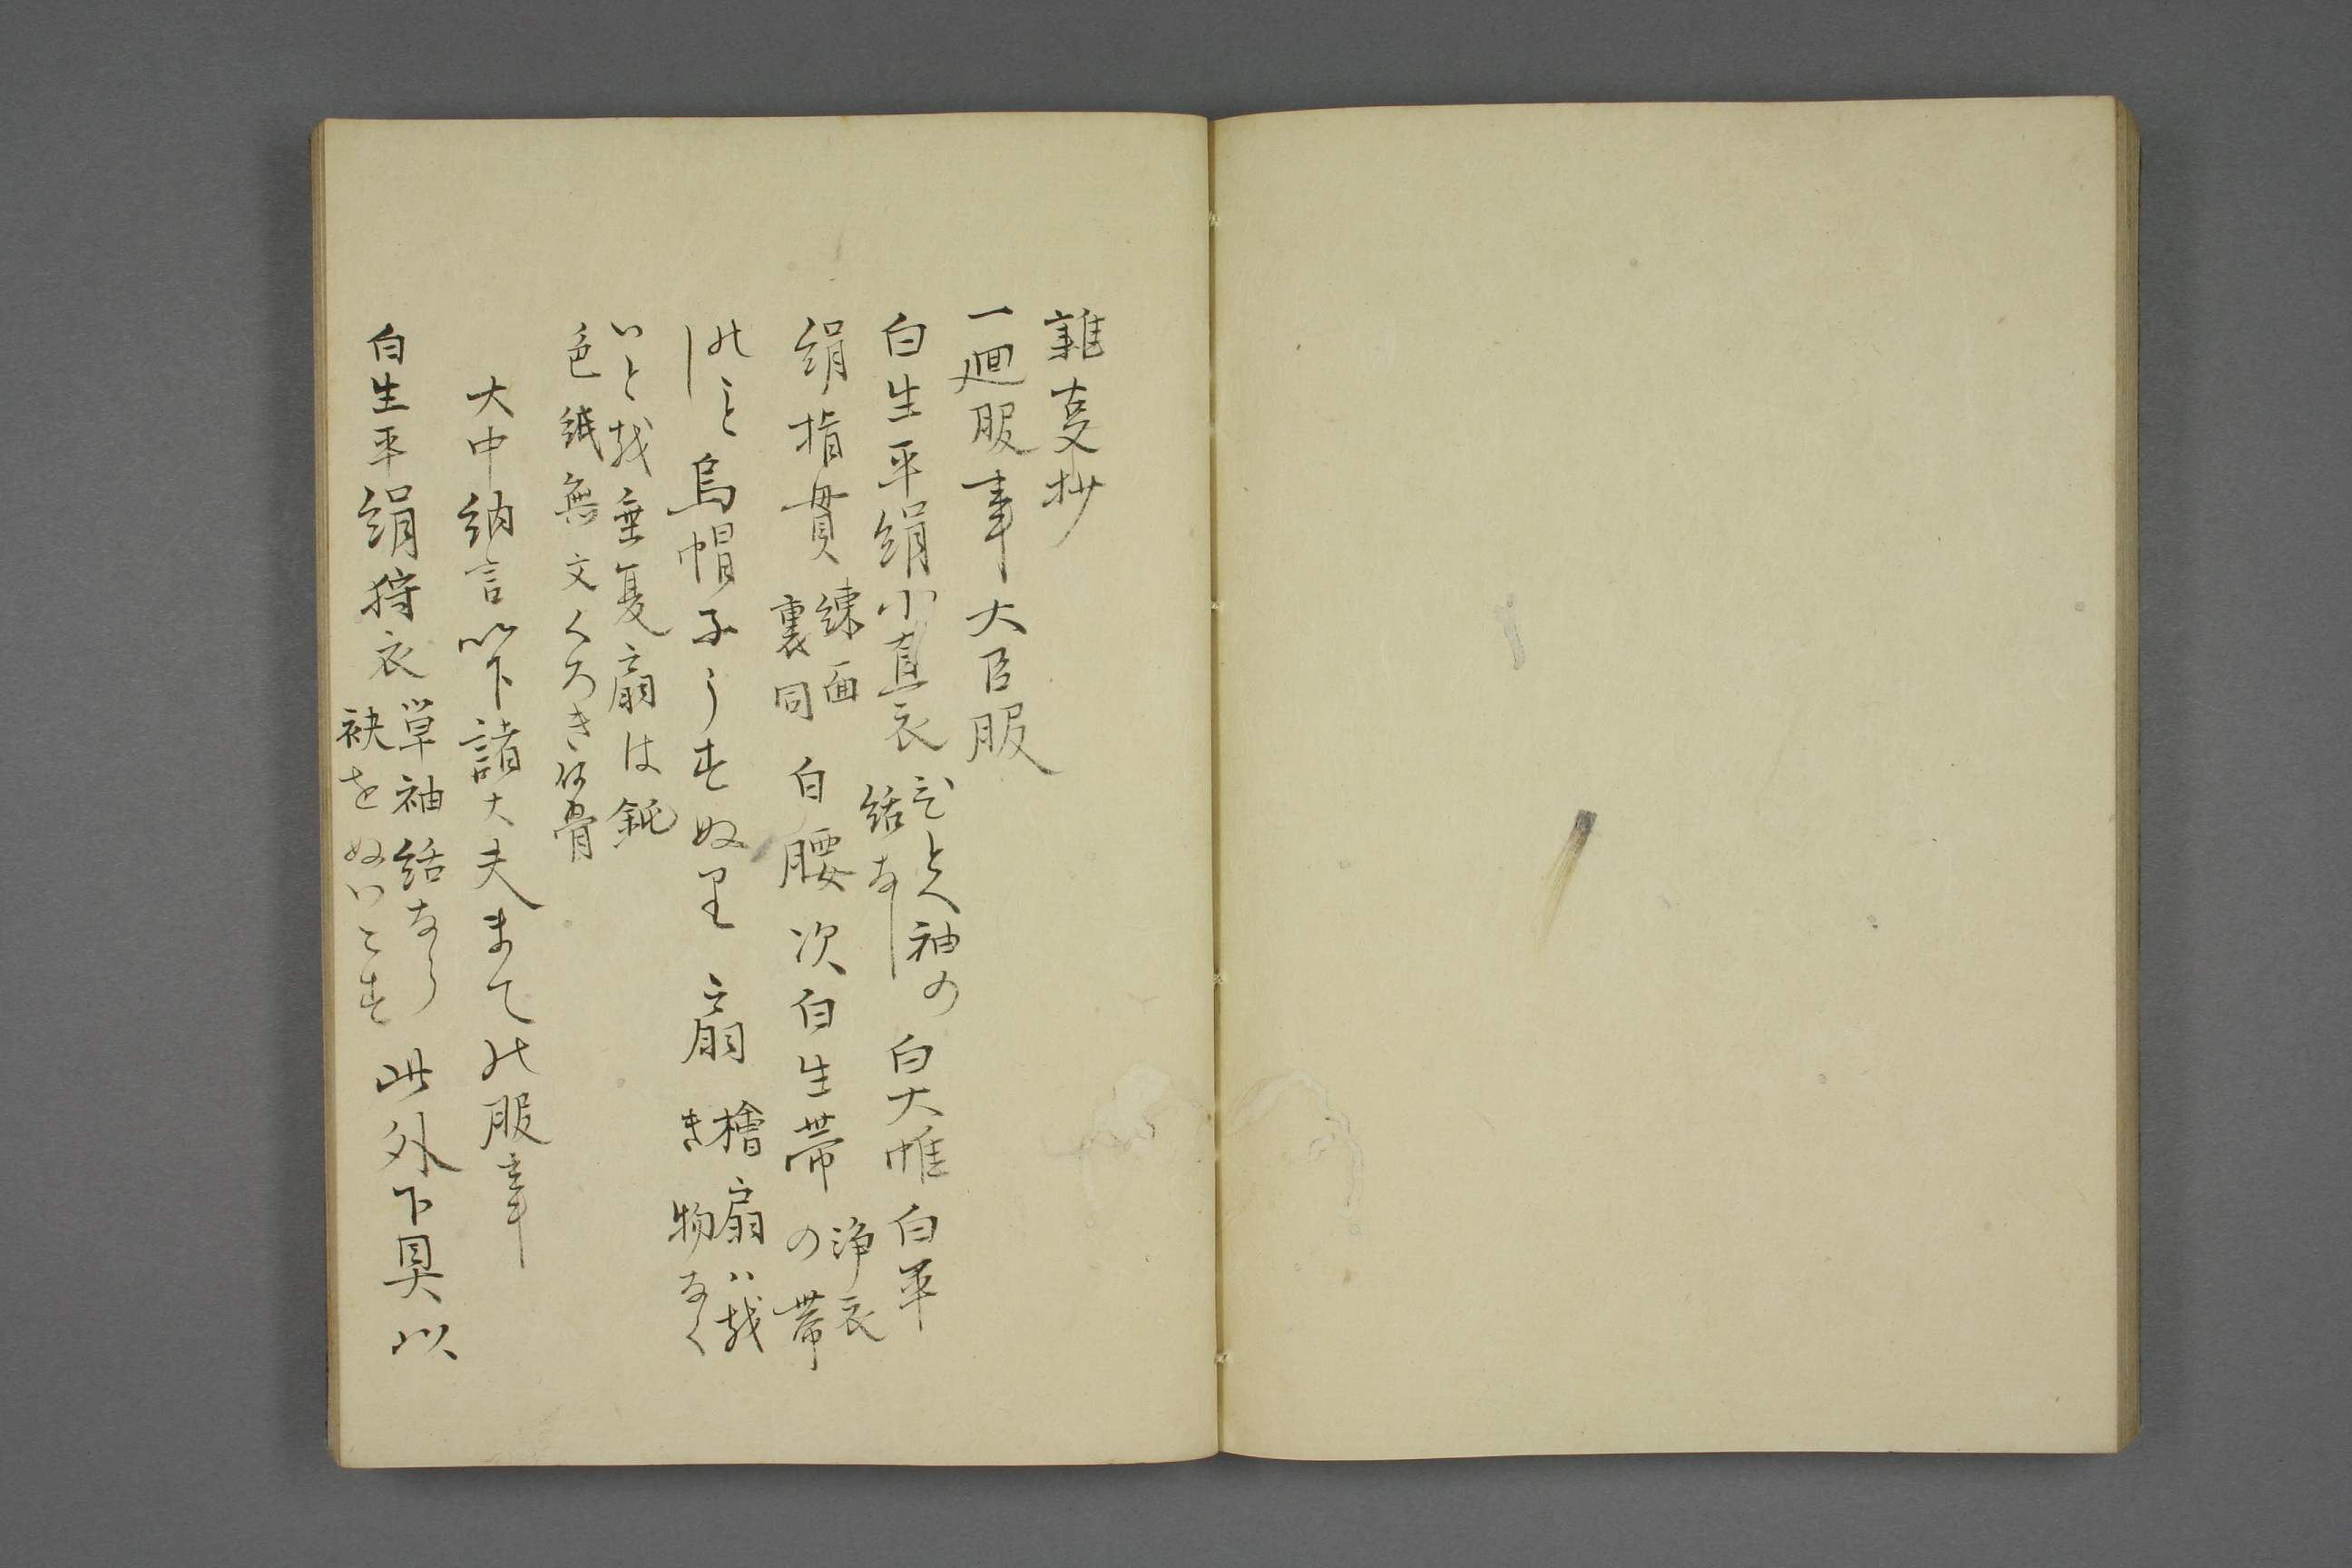 雑事抄
一廻服事 大臣服
白生平絹小直衣 ひとへ袖の
結なし 白大帷 白平
絹指貫 練面
裏同 白腰 次白生帯 浄衣
の帯
のこと
し 烏帽子うすぬり 扇 檜扇ハ
き 物なく
いと 垂夏扇は鈍
色紙無文くろき 骨
大中納言以下諸大夫まての服事
白生平絹狩衣 単袖結なし
袂をぬいこす 此外下具以